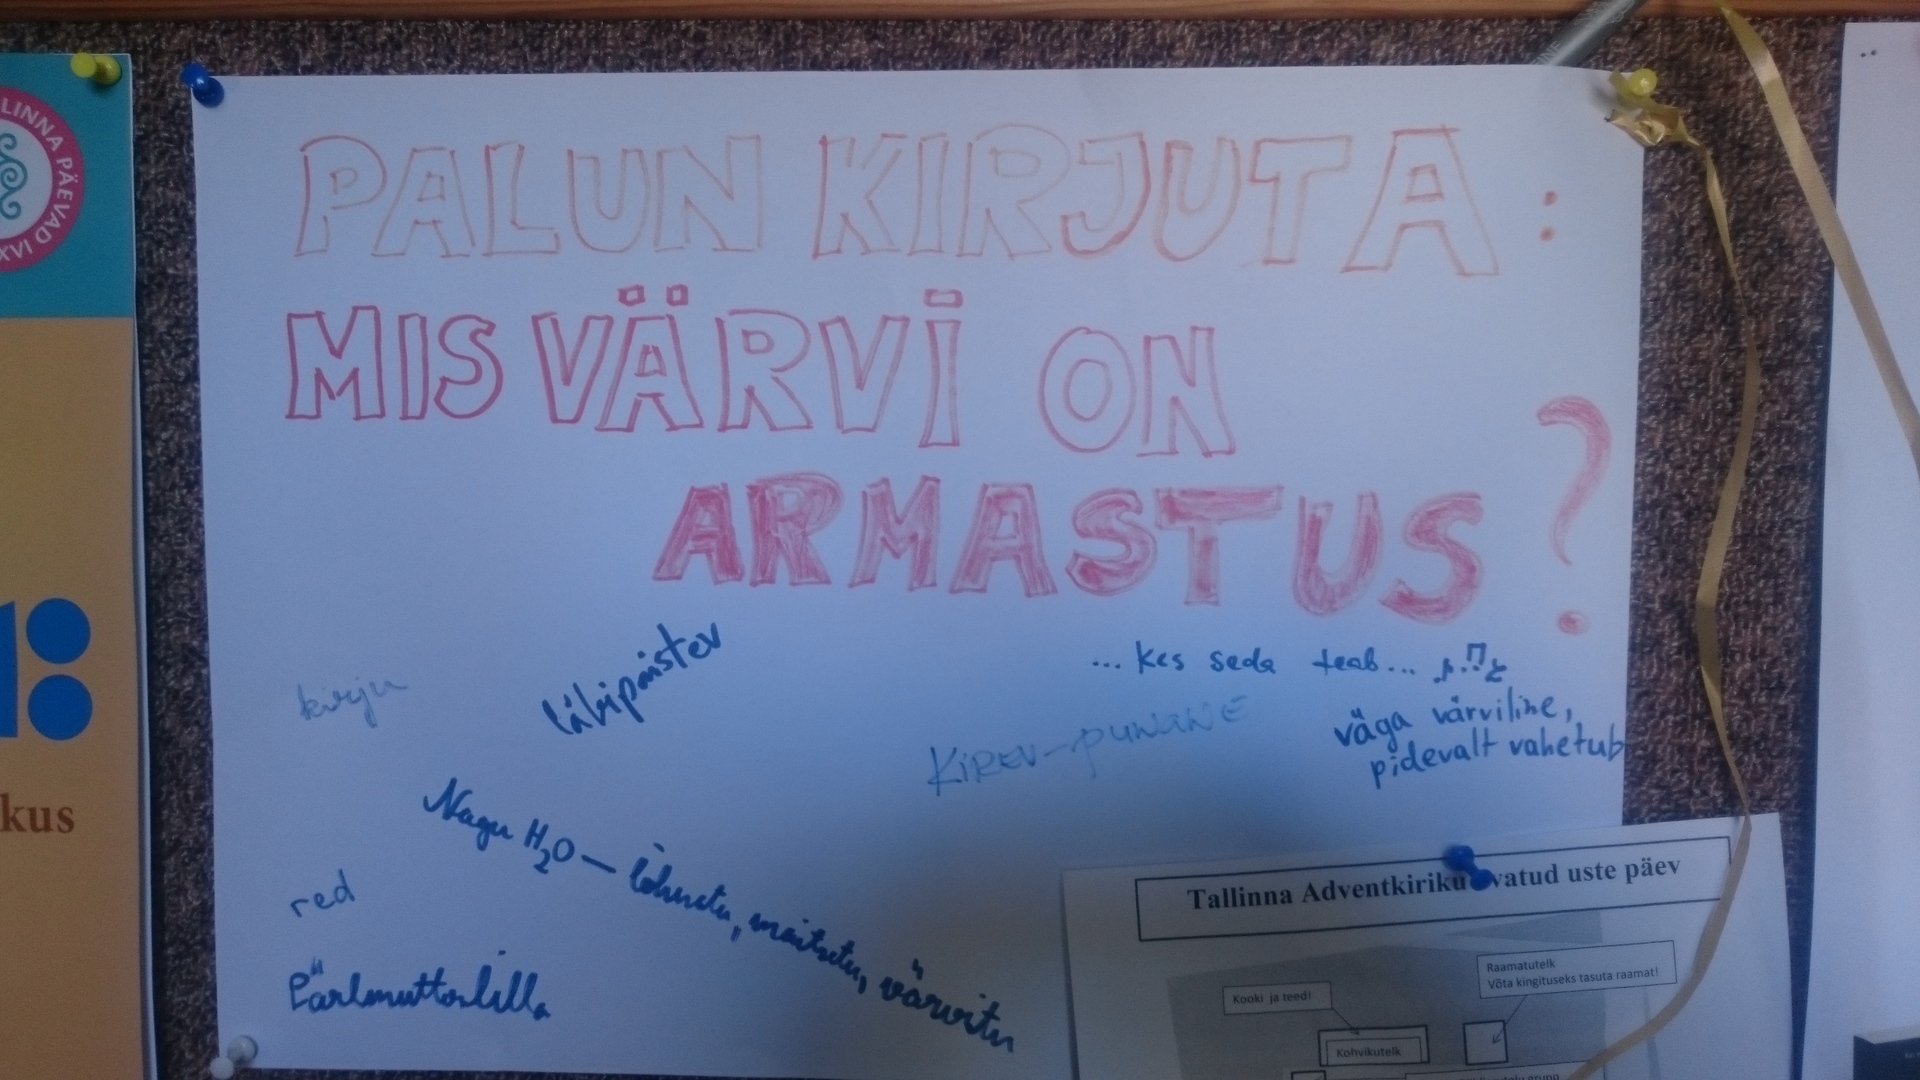 LINNA PÄEVAD XVI
kus
PALUN KIRJUTA:
MIS VÄRVI ON
ARMASTUS?
kirju
läbipaistev
... kes seda teab...
KIREV-PUNANE
väga värviline,
pidevalt vahetub
Nagu H₂O – lõhnatu, maitsetu, värvitu
red
Pärlmutterlilla
Tallinna Adventkiriku vatud uste päev
Raamatutelk
Võta kingituseks tasuta raamat!
Kooki ja teed!
Kohvikutelk